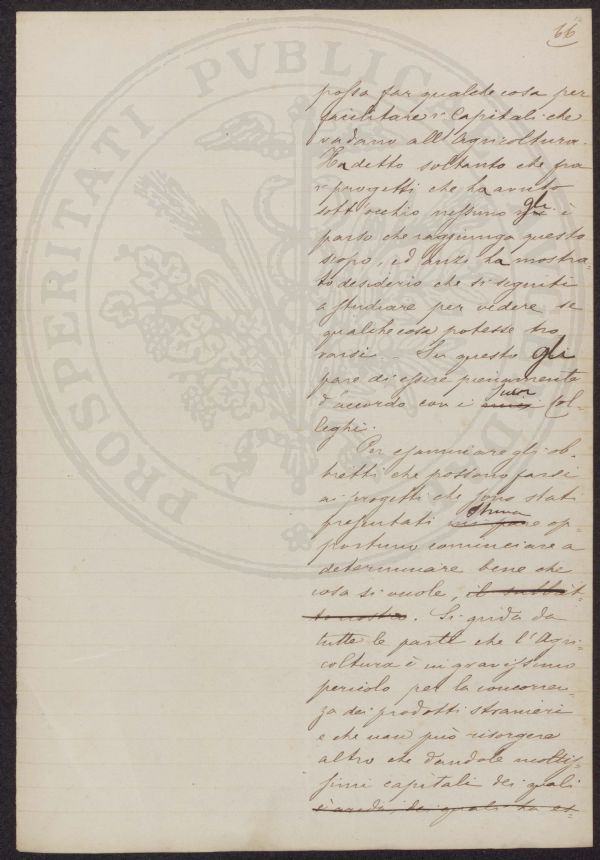 66
possa far qualche cosa per
facilitare i Capitali che
vadano all'Agricoltura.
Ha detto soltanto che fra
i progetti che ha avuto
sott'occhio nessuno gli è
parso che raggiunga questo
scopo, ed anzi ha mostra-
to desiderio che si seguiti
a studiare per vedere se
qualche cosa potesse tro
varsi. Su questo gli
pare di essere pienamente
d'accordo con i suoi Col-
leghi.
Per esaminare gli ob-
bietti che possono farsi
ai progetti che sono stati
presentati stima op-
portuno cominciare a
determinare bene che
cosa si vuole, il subbit-
to nostro. Si grida da
tutte le parti che l'Agri-
coltura è in gravissimo
pericolo per la concorren-
za dei prodotti stranieri
e che non può risorgere
altro che dandole moltis-
simi capitali dei quali
è arida, dei quali ha es-
PROSPERITATI PVBLICAE